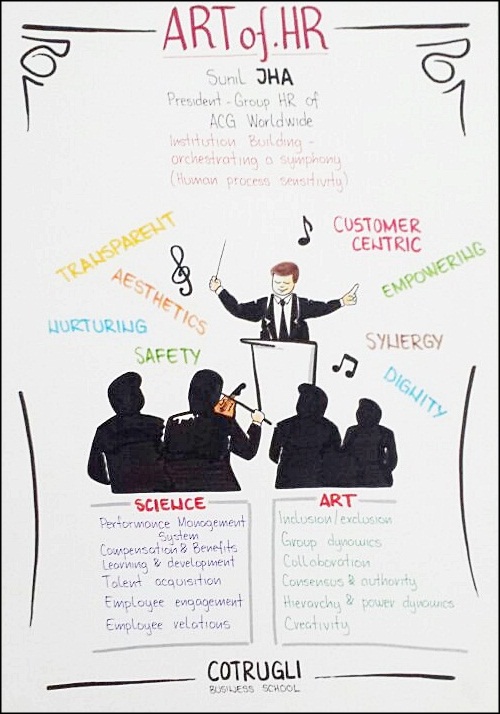 ART of HR
Sunil JHA
President - Group HR of
ACG Worldwide
Institution Building -
orchestrating a symphony
(Human process sensitivity)
TRANSPARENT
AESTHETICS
NURTURING
SAFETY
CUSTOMER
CENTRIC
EMPOWERING
SYNERGY
DIGNITY
SCIENCE
Performance Management
System
Compensation & Benefits
Learning & development
Talent acquisition
Employee engagement
Employee relations
ART
Inclusion/exclusion
Group dynamics
Collaboration
Consensus & authority
Hierarchy & power dynamics
Creativity
COTRUGLI
BUSINESS SCHOOL